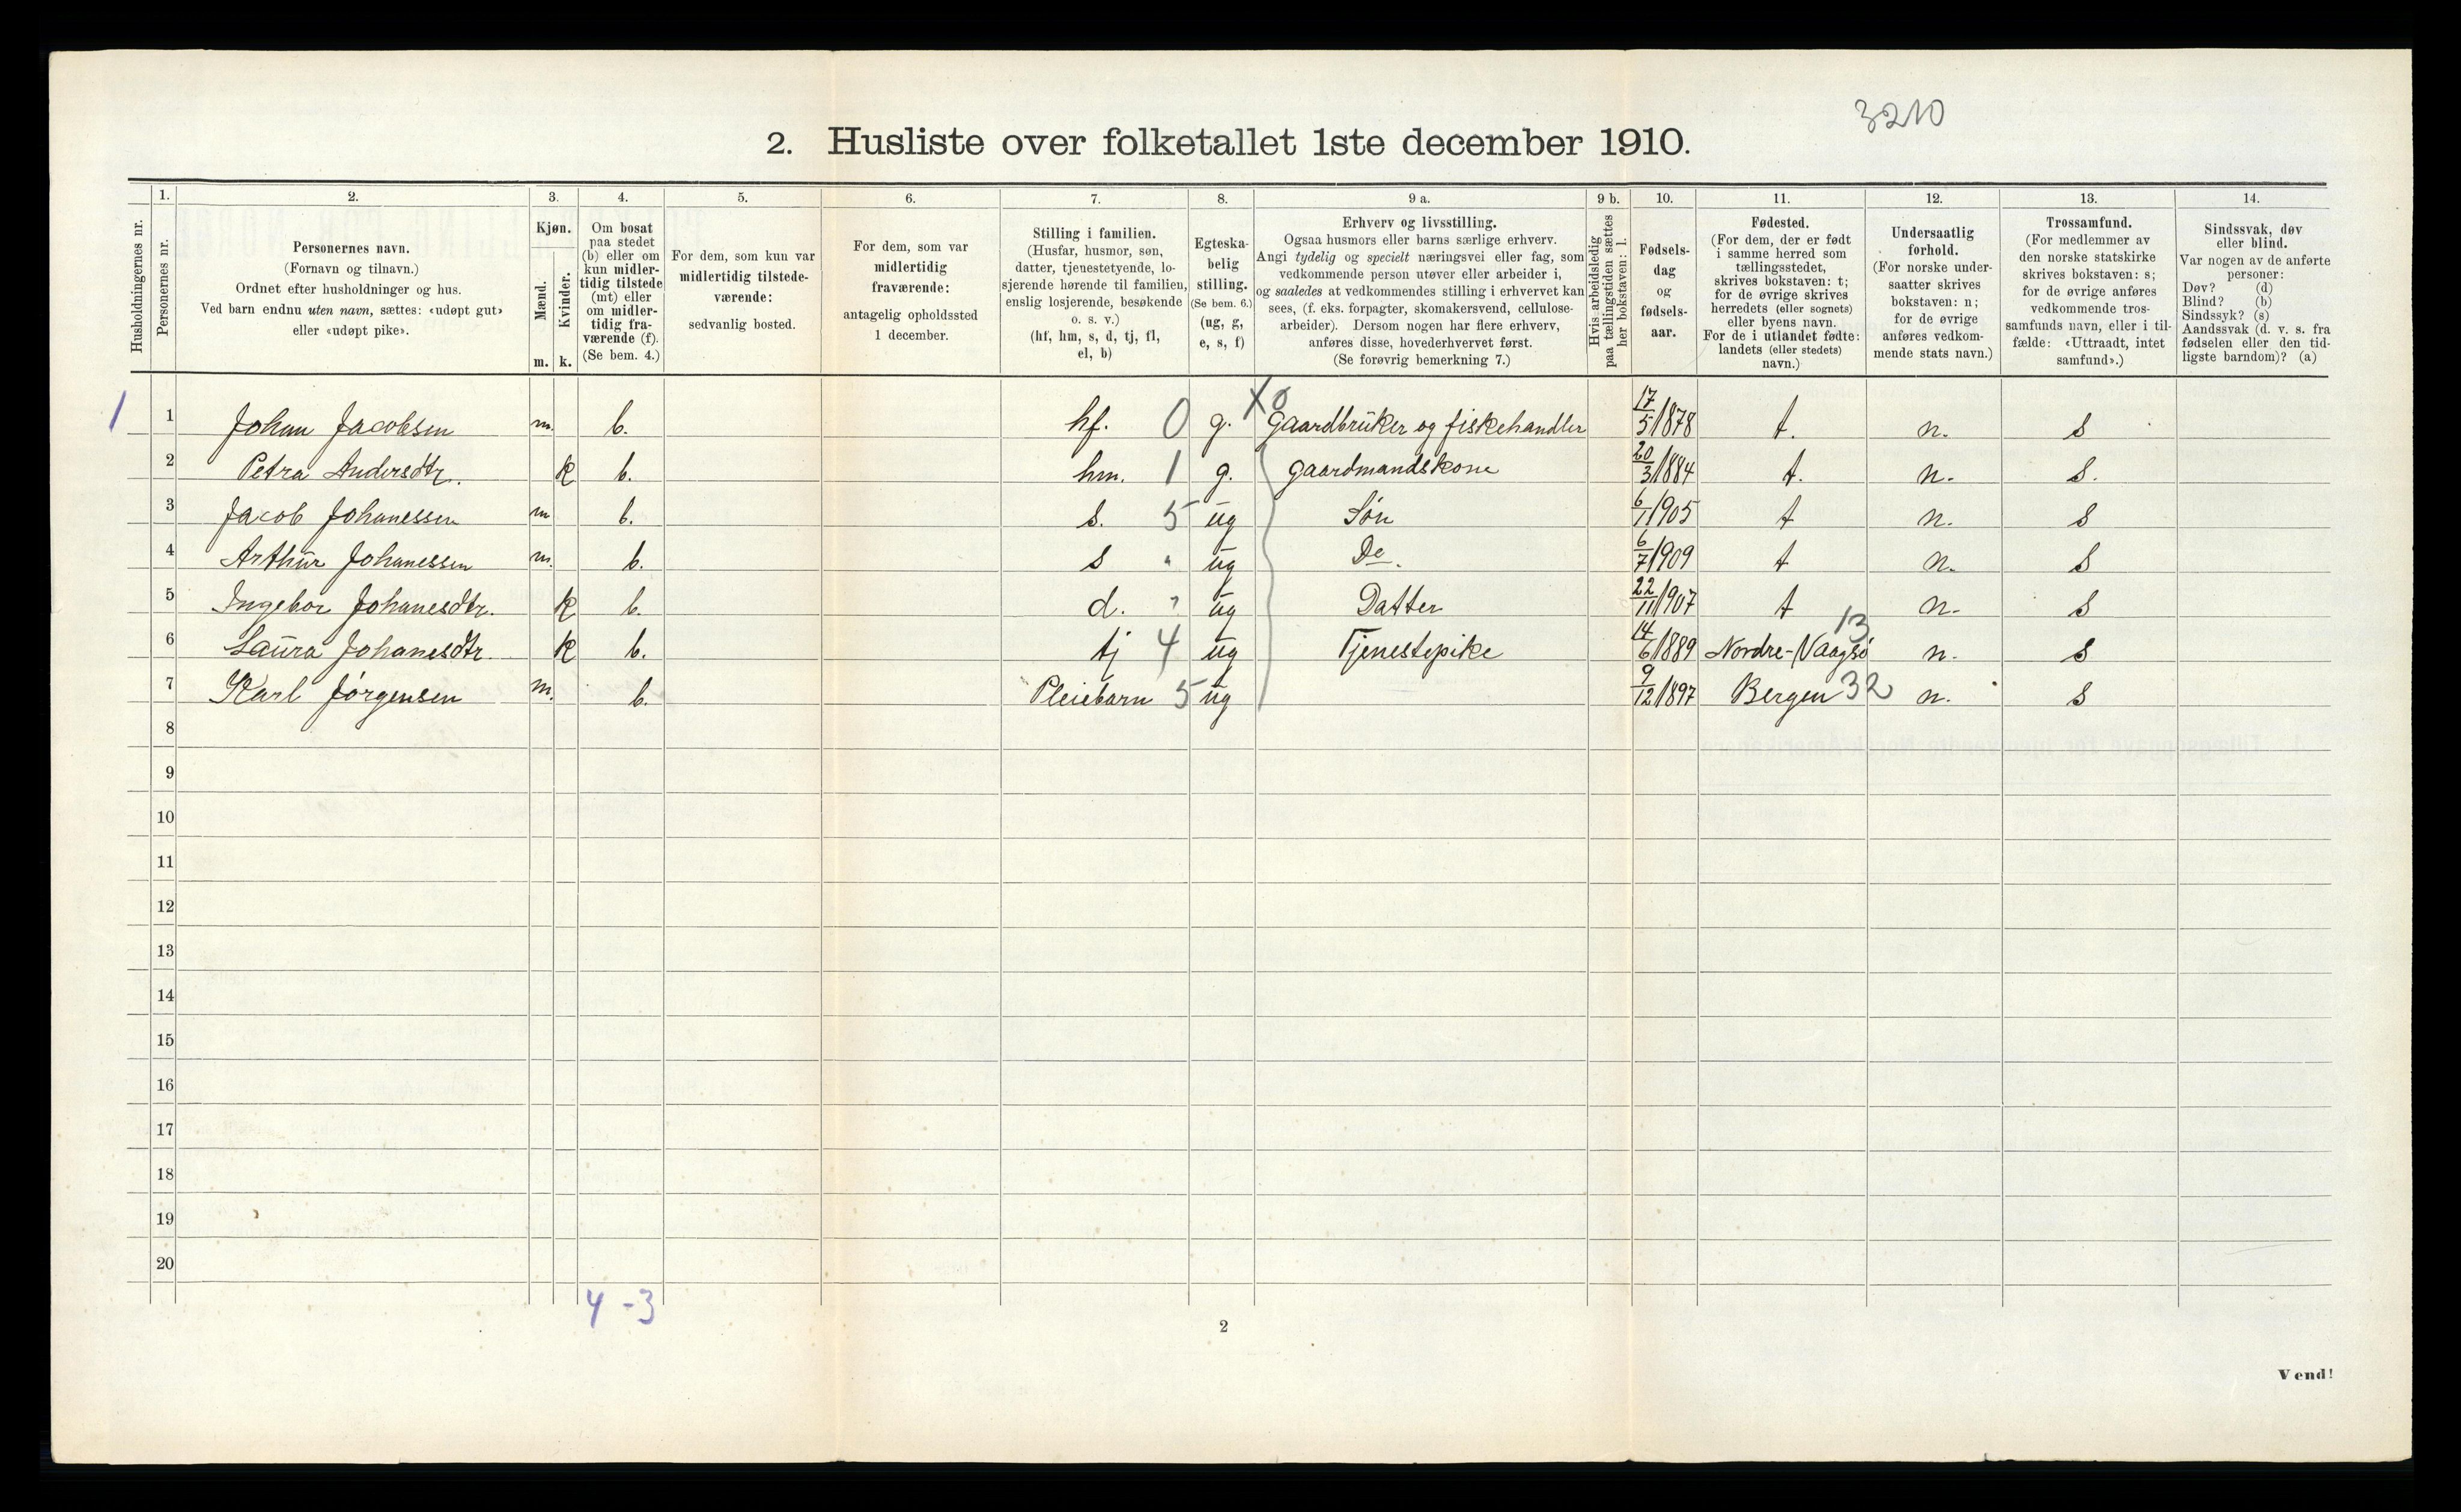 3210
2. Husliste over folketallet 1ste december 1910.
1. 2. 3. 4. 5. 6. 7. 8. 9 a. 9 b. 10. 11. 12. 13. 14.
Husholdningernes nr.
Personernes nr.
Personernes navn.
(Fornavn og tilnavn.)
Ordnet efter husholdninger og hus.
Ved barn endnu uten navn, sættes: «udøpt gut»
eller «udøpt pike».
Kjøn.
Mænd.
Kvinder.
m. k.
Om bosat
paa stedet
(b) eller om
kun midler-
tidig tilstede
(mt) eller
om midler-
tidig fra-
værende (f).
(Se bem. 4.)
For dem, som kun var
midlertidig tilstede-
værende:
sedvanlig bosted.
For dem, som var
midlertidig
fraværende:
antagelig opholdssted
1 december.
Stilling i familien.
(Husfar, husmor, søn,
datter, tjenestetyende, lo-
sjerende hørende til familien,
enslig losjerende, besøkende
o. s. v.)
(hf, hm, s, d, tj, fl,
el, b)
Egteska-
belig
stilling.
(Se bem. 6.)
(ug, g,
e, s, f)
Erhverv og livsstilling.
Ogsaa husmors eller barns særlige erhverv.
Angi tydelig og specielt næringsvei eller fag, som
vedkommende person utøver eller arbeider i,
og saaledes at vedkommendes stilling i erhvervet kan
sees, (f. eks. forpagter, skomakersvend, cellulose-
arbeider). Dersom nogen har flere erhverv,
anføres disse, hovederhvervet først.
(Se forøvrig bemerkning 7.)
Hvis arbeidsledig
paa tællingstiden sættes
her bokstaven: l.
Fødsels-
dag
og
fødsels-
aar.
Fødested.
(For dem, der er født
i samme herred som
tællingsstedet,
skrives bokstaven: t;
for de øvrige skrives
herredets (eller sognets)
eller byens navn.
For de i utlandet fødte:
landets (eller stedets)
navn.)
Undersaatlig
forhold.
(For norske under-
saatter skrives
bokstaven: n;
for de øvrige
anføres vedkom-
mende stats navn.)
Trossamfund.
(For medlemmer av
den norske statskirke
skrives bokstaven: s;
for de øvrige anføres
vedkommende tros-
samfunds navn, eller i til-
fælde: «Uttraadt, intet
samfund».)
Sindssvak, døv
eller blind.
Var nogen av de anførte
personer:
Døv? (d)
Blind? (b)
Sindssyk? (s)
Aandssvak (d. v. s. fra
fødselen eller den tid-
ligste barndom)? (a)
X 0
1 1 Johan Jacobsen m. b. hf. 0 g. Gaardbrüker og fiskehandler 17/5 1878 t. n. s
2 Petra Andersdtr. k b. hm. 1 g. gaardmandskone 20/3 1884 t. n. s.
3 Jacob Johanessen m b. s. 5 ug Søn 6/1 1905 t n. s
4 Arthur Johanessen m. b. s " ug Do. 6/7 1909 t n. s
5 Ingebor Johanesdtr. k b. d. " ug Datter 22/11 1907 t n. s
6 Laura Johanesdtr. k b. tj 4 ug Tjenestepike 14/6 1889 Nordre-Vaagsø 13 n. s
7 Karl Jørgensen m. b. Pleiebarn 5 ug 9/12 1897 Bergen 32 n. s
8
9
10
11
12
13
14
15
16
17
18
19
20
4 - 3
2
Vend!